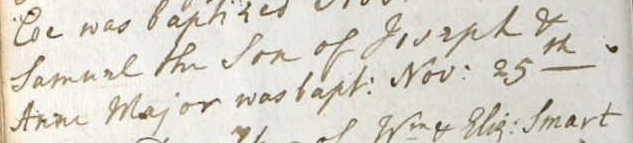 was baptized Nov:
Samuel the Son of Joseph &
Anne Major was bapt: Nov: 25th
of Wm & Eliz: Smart